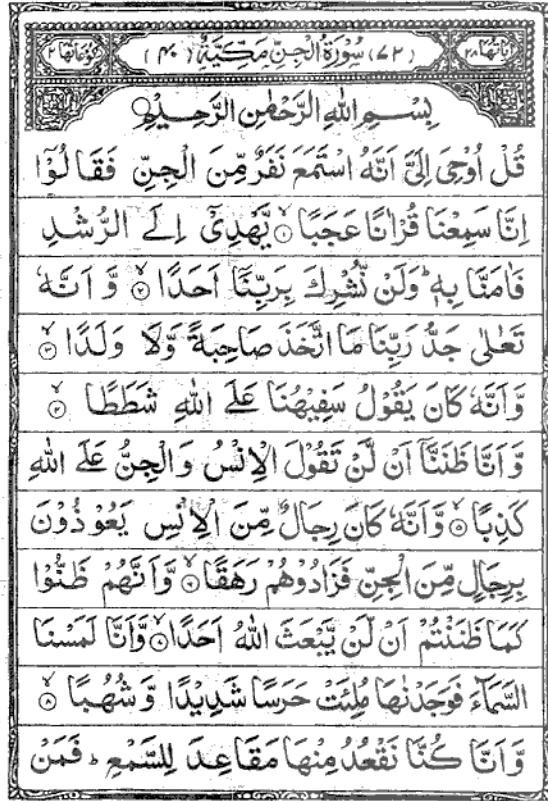 اٰیَاتُهَا ۲۸ (۷۲) سُوْرَةُ الْجِنِّ مَكِّیَّةٌ (۴۰) رُكُوْعَاتُهَا ۲
بِسْمِ اللّٰهِ الرَّحْمٰنِ الرَّحِیْمِ
قُلْ اُوْحِیَ اِلَیَّ اَنَّهُ اسْتَمَعَ نَفَرٌ مِّنَ الْجِنِّ فَقَالُوْۤا
اِنَّا سَمِعْنَا قُرْاٰنًا عَجَبًا ۱ یَّهْدِیْۤ اِلَی الرُّشْدِ
فَاٰمَنَّا بِهٖ ؕ وَلَنْ نُّشْرِكَ بِرَبِّنَاۤ اَحَدًا ۲ وَّ اَنَّهٗ
تَعٰلٰی جَدُّ رَبِّنَا مَا اتَّخَذَ صَاحِبَةً وَّلَا وَلَدًا ۳
وَّ اَنَّهٗ كَانَ یَقُوْلُ سَفِیْهُنَا عَلَی اللّٰهِ شَطَطًا ۴
وَّ اَنَّا ظَنَنَّاۤ اَنْ لَّنْ تَقُوْلَ الْاِنْسُ وَ الْجِنُّ عَلَی اللّٰهِ
كَذِبًا ۵ وَّ اَنَّهٗ كَانَ رِجَالٌ مِّنَ الْاِنْسِ یَعُوْذُوْنَ
بِرِجَالٍ مِّنَ الْجِنِّ فَزَادُوْهُمْ رَهَقًا ۶ وَّ اَنَّهُمْ ظَنُّوْا
كَمَا ظَنَنْتُمْ اَنْ لَّنْ یَّبْعَثَ اللّٰهُ اَحَدًا ۷ وَّ اَنَّا لَمَسْنَا
السَّمَآءَ فَوَجَدْنٰهَا مُلِئَتْ حَرَسًا شَدِیْدًا وَّ شُهُبًا ۸
وَّ اَنَّا كُنَّا نَقْعُدُ مِنْهَا مَقَاعِدَ لِلسَّمْعِ ؕ فَمَنْ